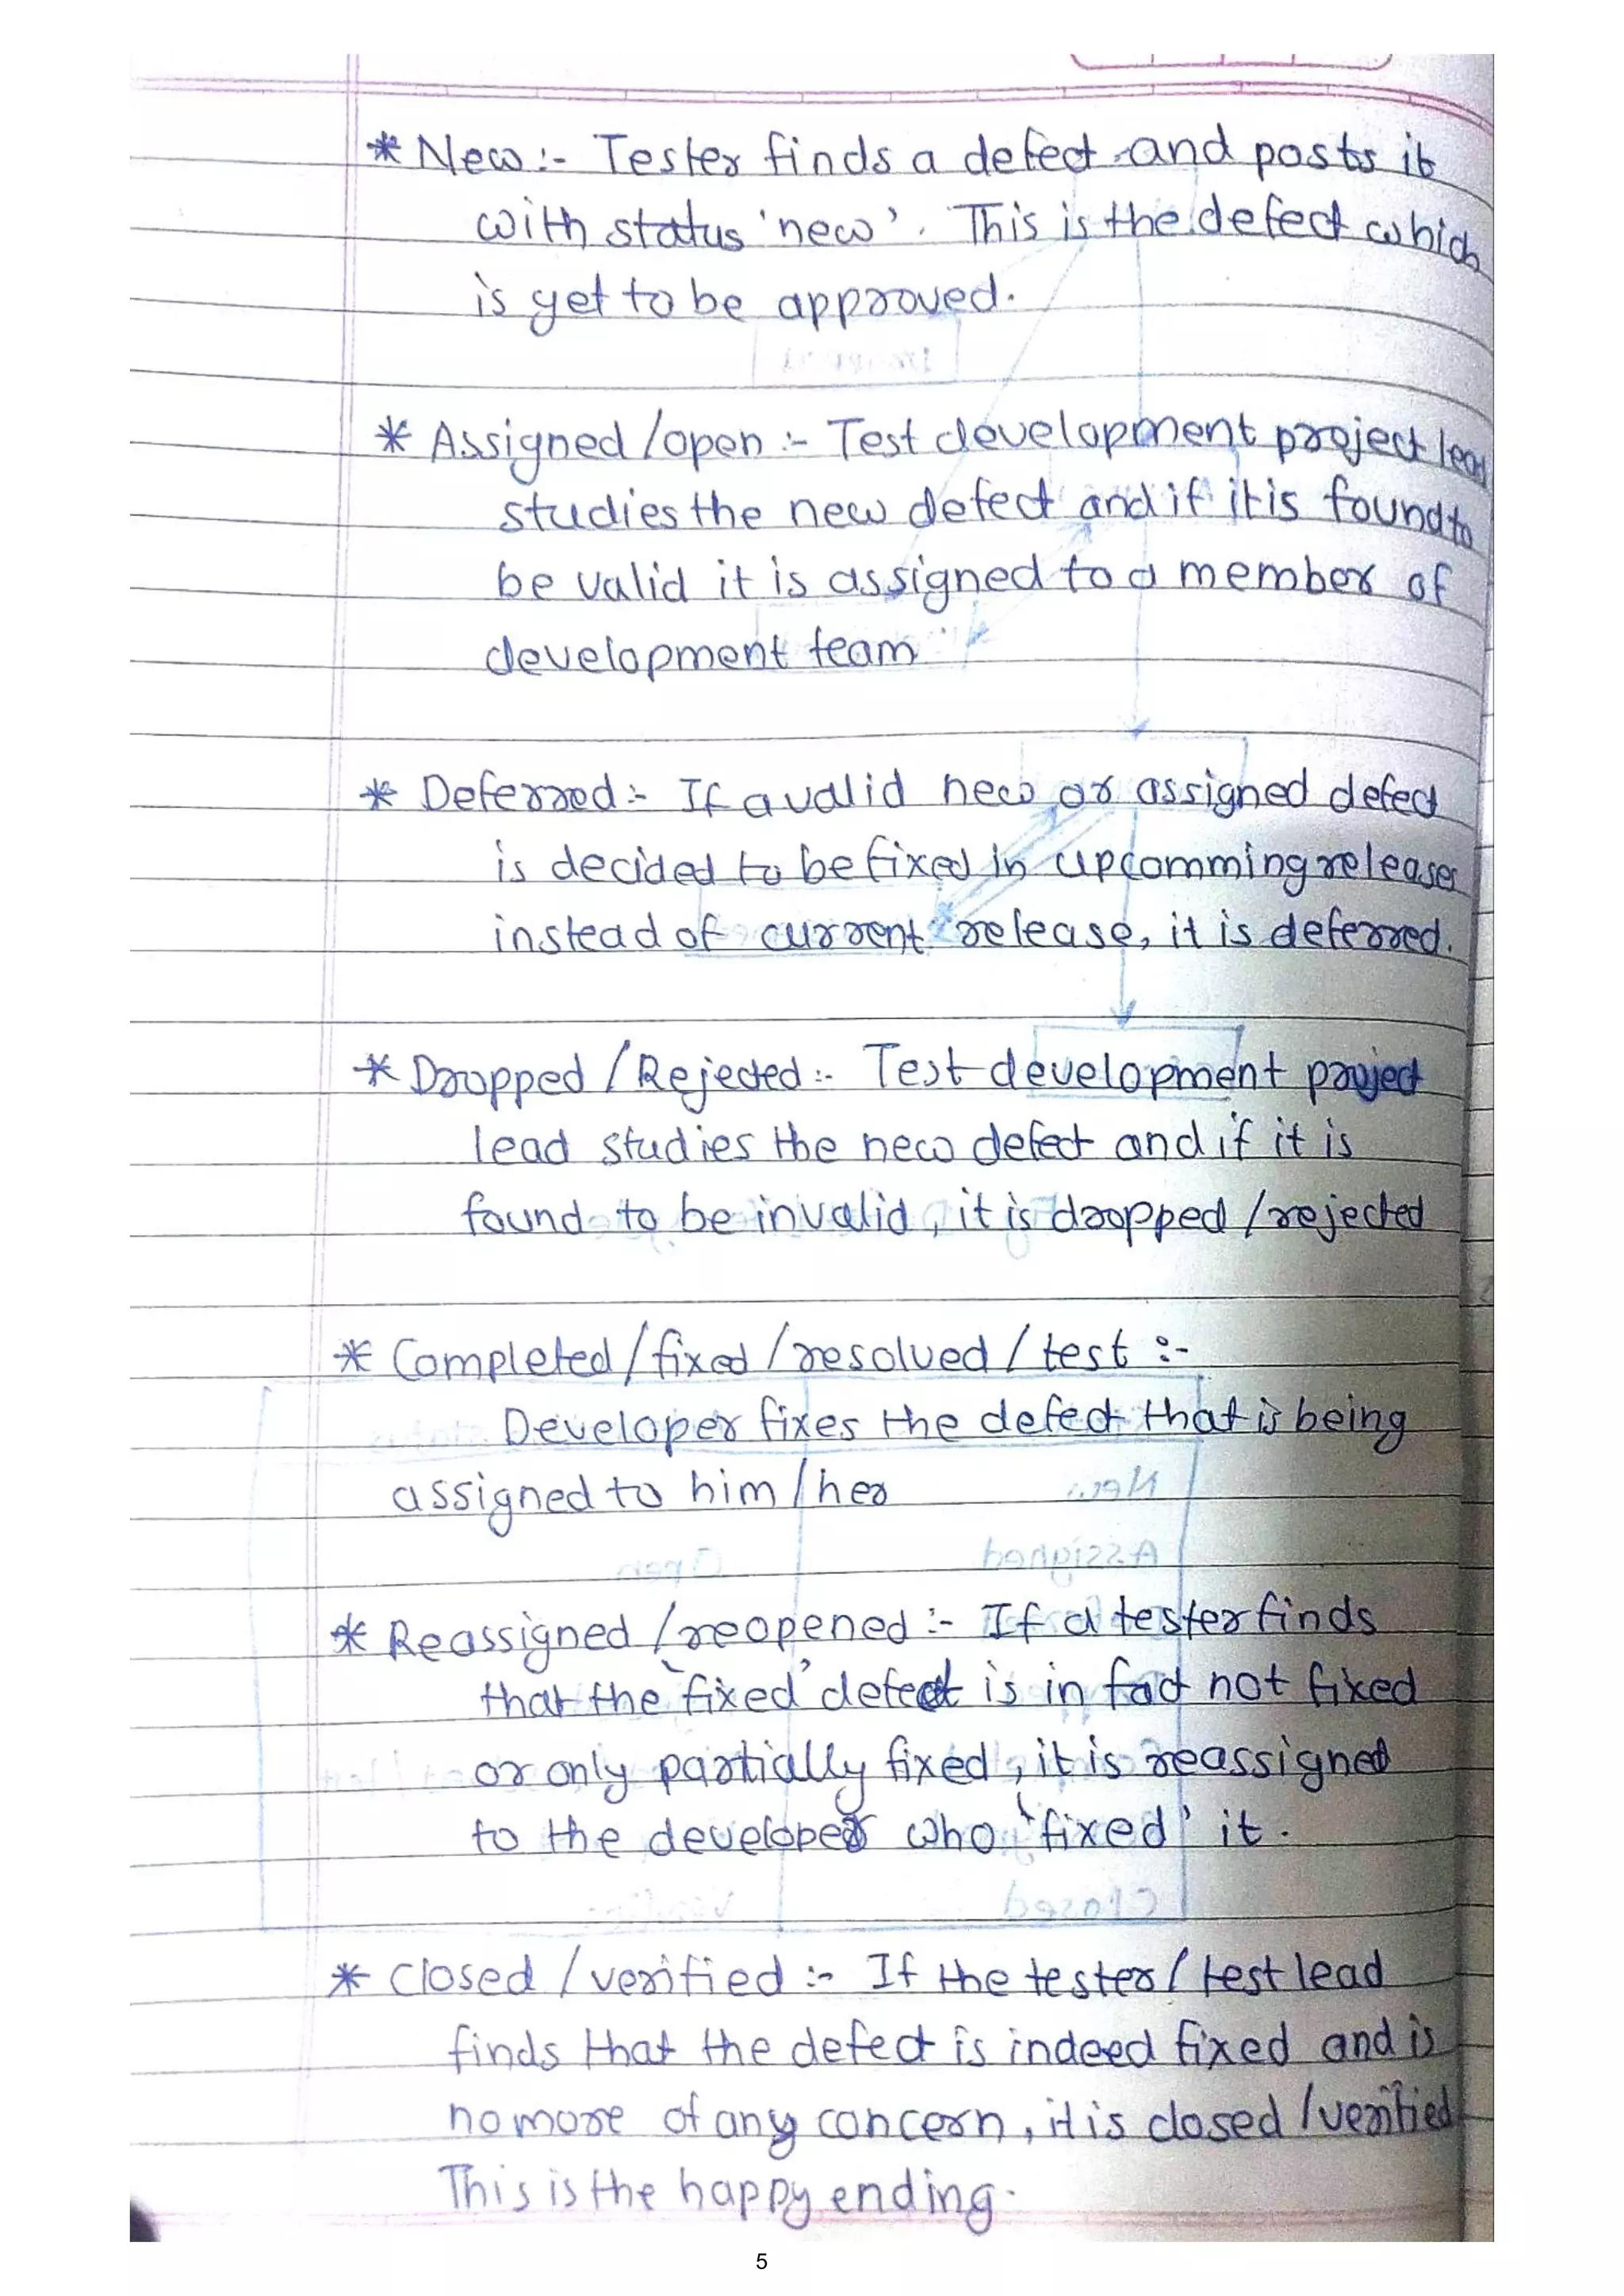 * New :- Tester finds a defect and posts it
with status 'new'. This is the defect which
is yet to be approved.
* Assigned /open :- Test development project lead
studies the new defect and if it is found to
be valid it is assigned to a member of
development team
* Deferred :- If a valid new or assigned defect
is decided to be fixed in upcomming releases
instead of current release, it is deferred.
* Dropped / Rejected :- Test development project
lead studies the new defect and if it is
found to be invalid, it is dropped /rejected
* Completed / fixed / resolved / test :-
Developer fixes the defect that is being
assigned to him / her
* Reassigned /reopened :- If a tester finds
that the 'fixed' defect is in fact not fixed
or only partially fixed, it is reassigned
to the developer who 'fixed' it.
* Closed / verified :- If the tester / test lead
finds that the defect is indeed fixed and is
no more of any concern, it is closed /verified
This is the happy ending.
5